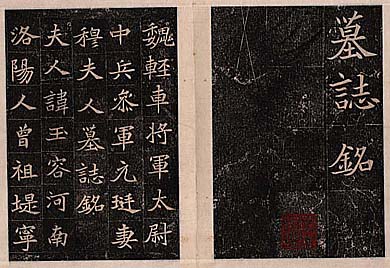 墓誌銘
魏輕車將軍太尉
中兵叅軍元珽妻
穆夫人墓誌銘
夫人諱玉容河南
洛陽人曾祖堤寧